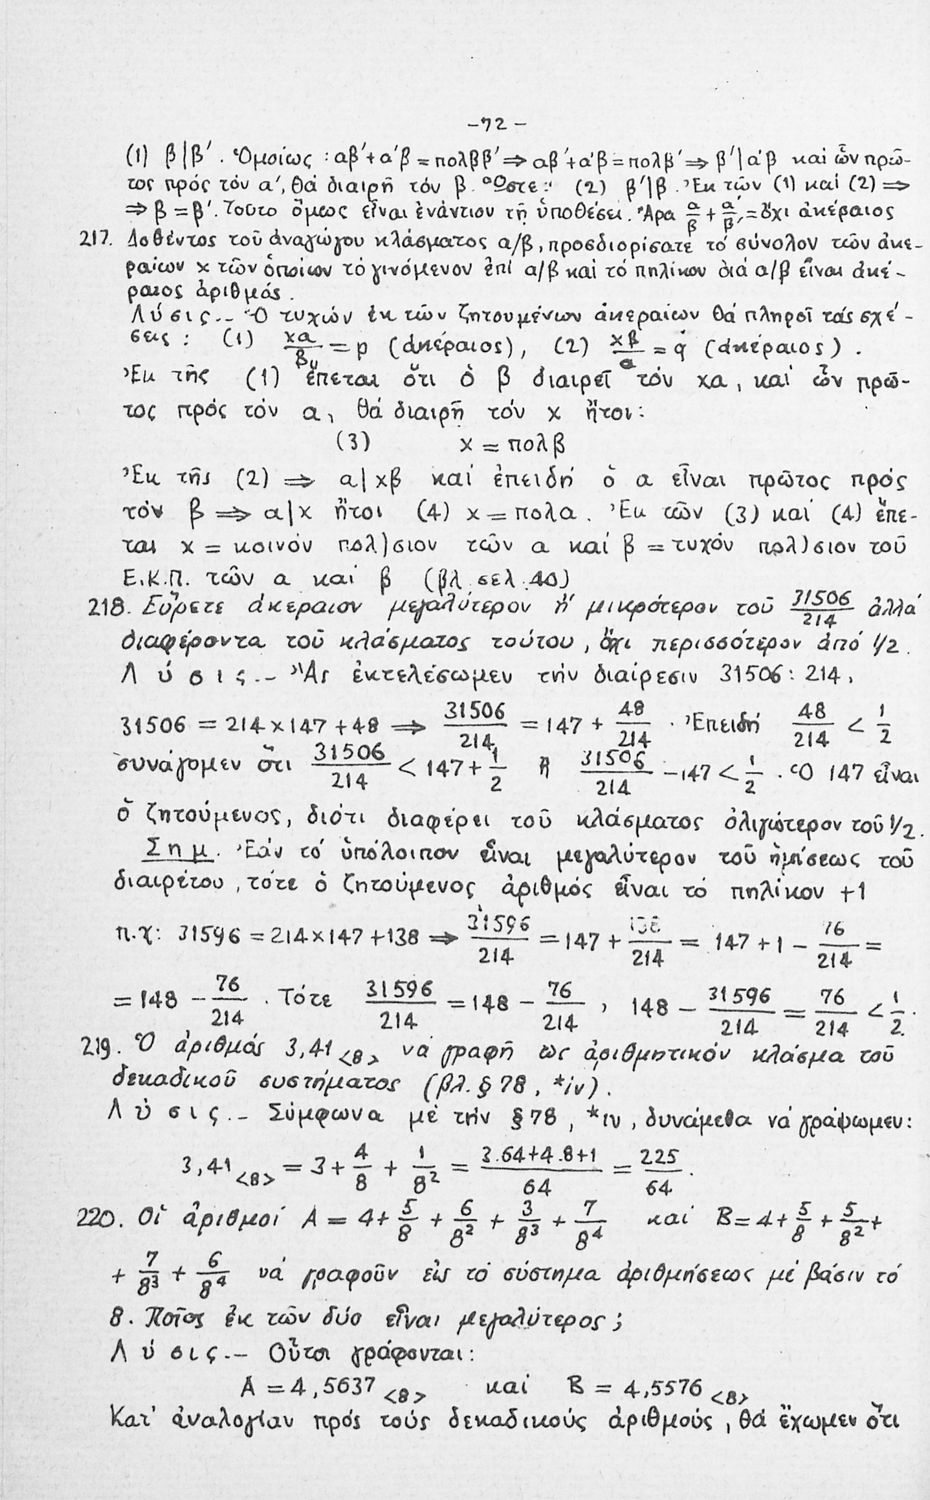 -72-
(1) β|β΄. Ὁμοίως: αβ΄+α΄β = πολββ΄⇒ αβ΄+α΄β = πολβ΄⇒ β΄|α΄β καί ὤν πρῶ-
τος πρός τόν α΄, θά διαιρῇ τόν β. Ὥστε: (2) β΄|β. Ἐκ τῶν (1) καί (2) ⇒
⇒ β = β΄. Τοῦτο ὅμως εἶναι ἐνάντιον τῇ ὑποθέσει. Ἄρα α/β + α΄/β΄ = ὄχι ἀκέραιος
217. Δοθέντος τοῦ ἀναγώγου κλάσματος α/β, προσδιορίσατε τό σύνολον τῶν ἀκε-
ραίων x τῶν ὁποίων τό γινόμενον ἐπί α/β καί τό πηλίκον διά α/β εἶναι ἀκέ-
ραιος ἀριθμός.
Λύσις.- Ὁ τυχών ἐκ τῶν ζητουμένων ἀκεραίων θά πληροῖ τάς σχέ-
σεις: (1) xα/β = p (ἀκέραιος), (2) xβ/α = q (ἀκέραιος).
Ἐκ τῆς (1) ἕπεται ὅτι ὁ β διαιρεῖ τόν xα, καί ὤν πρῶ-
τος πρός τόν α, θά διαιρῇ τόν x ἤτοι:
(3) x = πολβ
Ἐκ τῆς (2) ⇒ α|xβ καί ἐπειδή ὁ α εἶναι πρῶτος πρός
τόν β ⇒ α|x ἤτοι (4) x = πολα. Ἐκ τῶν (3) καί (4) ἕπε-
ται x = κοινόν πολ)σιον τῶν α καί β = τυχόν πολ)σιον τοῦ
Ε.Κ.Π. τῶν α καί β (βλ. σελ. 40)
218. Εὕρετε ἀκέραιον μεγαλύτερον ἤ μικρότερον τοῦ 31506/214 ἀλλά
διαφέροντα τοῦ κλάσματος τούτου, ὄχι περισσότερον ἀπό 1/2.
Λύσις.- Ἄς ἐκτελέσωμεν τήν διαίρεσιν 31506:214,
31506 = 214x147+48 ⇒ 31506/214 = 147 + 48/214 . Ἐπειδή 48/214 < 1/2
συνάγομεν ὅτι 31506/214 < 147+ 1/2 ἤ 31506/214 -147 < 1/2 . Ὁ 147 εἶναι
ὁ ζητούμενος, διότι διαφέρει τοῦ κλάσματος ὀλιγώτερον τοῦ 1/2.
Σημ. Ἐάν τό ὑπόλοιπον εἶναι μεγαλύτερον τοῦ ἡμίσεως τοῦ
διαιρέτου, τότε ὁ ζητούμενος ἀριθμός εἶναι τό πηλίκον +1
π.χ: 31596 = 214x147+138 ⇒ 31596/214 = 147 + 138/214 = 147+1 - 76/214 =
= 148 - 76/214 . Τότε 31596/214 = 148 - 76/214 , 148 - 31596/214 = 76/214 < 1/2.
219. Ὁ ἀριθμός 3,41<8> νά γραφῇ ὡς ἀριθμητικόν κλάσμα τοῦ
δεκαδικοῦ συστήματος (βλ. §78, *iv).
Λύσις.- Σύμφωνα μέ τήν §78, *iv, δυνάμεθα νά γράψωμεν:
3,41<8> = 3 + 4/8 + 1/8² = 3.64+4.8+1/64 = 225/64.
220. Οἱ ἀριθμοί Α = 4+ 5/8 + 6/8² + 3/8³ + 7/8⁴ καί Β = 4+ 5/8 + 5/8² +
+ 7/8³ + 6/8⁴ νά γραφοῦν εἰς τό σύστημα ἀριθμήσεως μέ βάσιν τό
8. Ποῖος ἐκ τῶν δύο εἶναι μεγαλύτερος;
Λύσις.- Οὗτοι γράφονται:
Α = 4,5637<8> καί Β = 4,5576<8>
Κατ' ἀναλογίαν πρός τούς δεκαδικούς ἀριθμούς, θά ἔχωμεν ὅτι